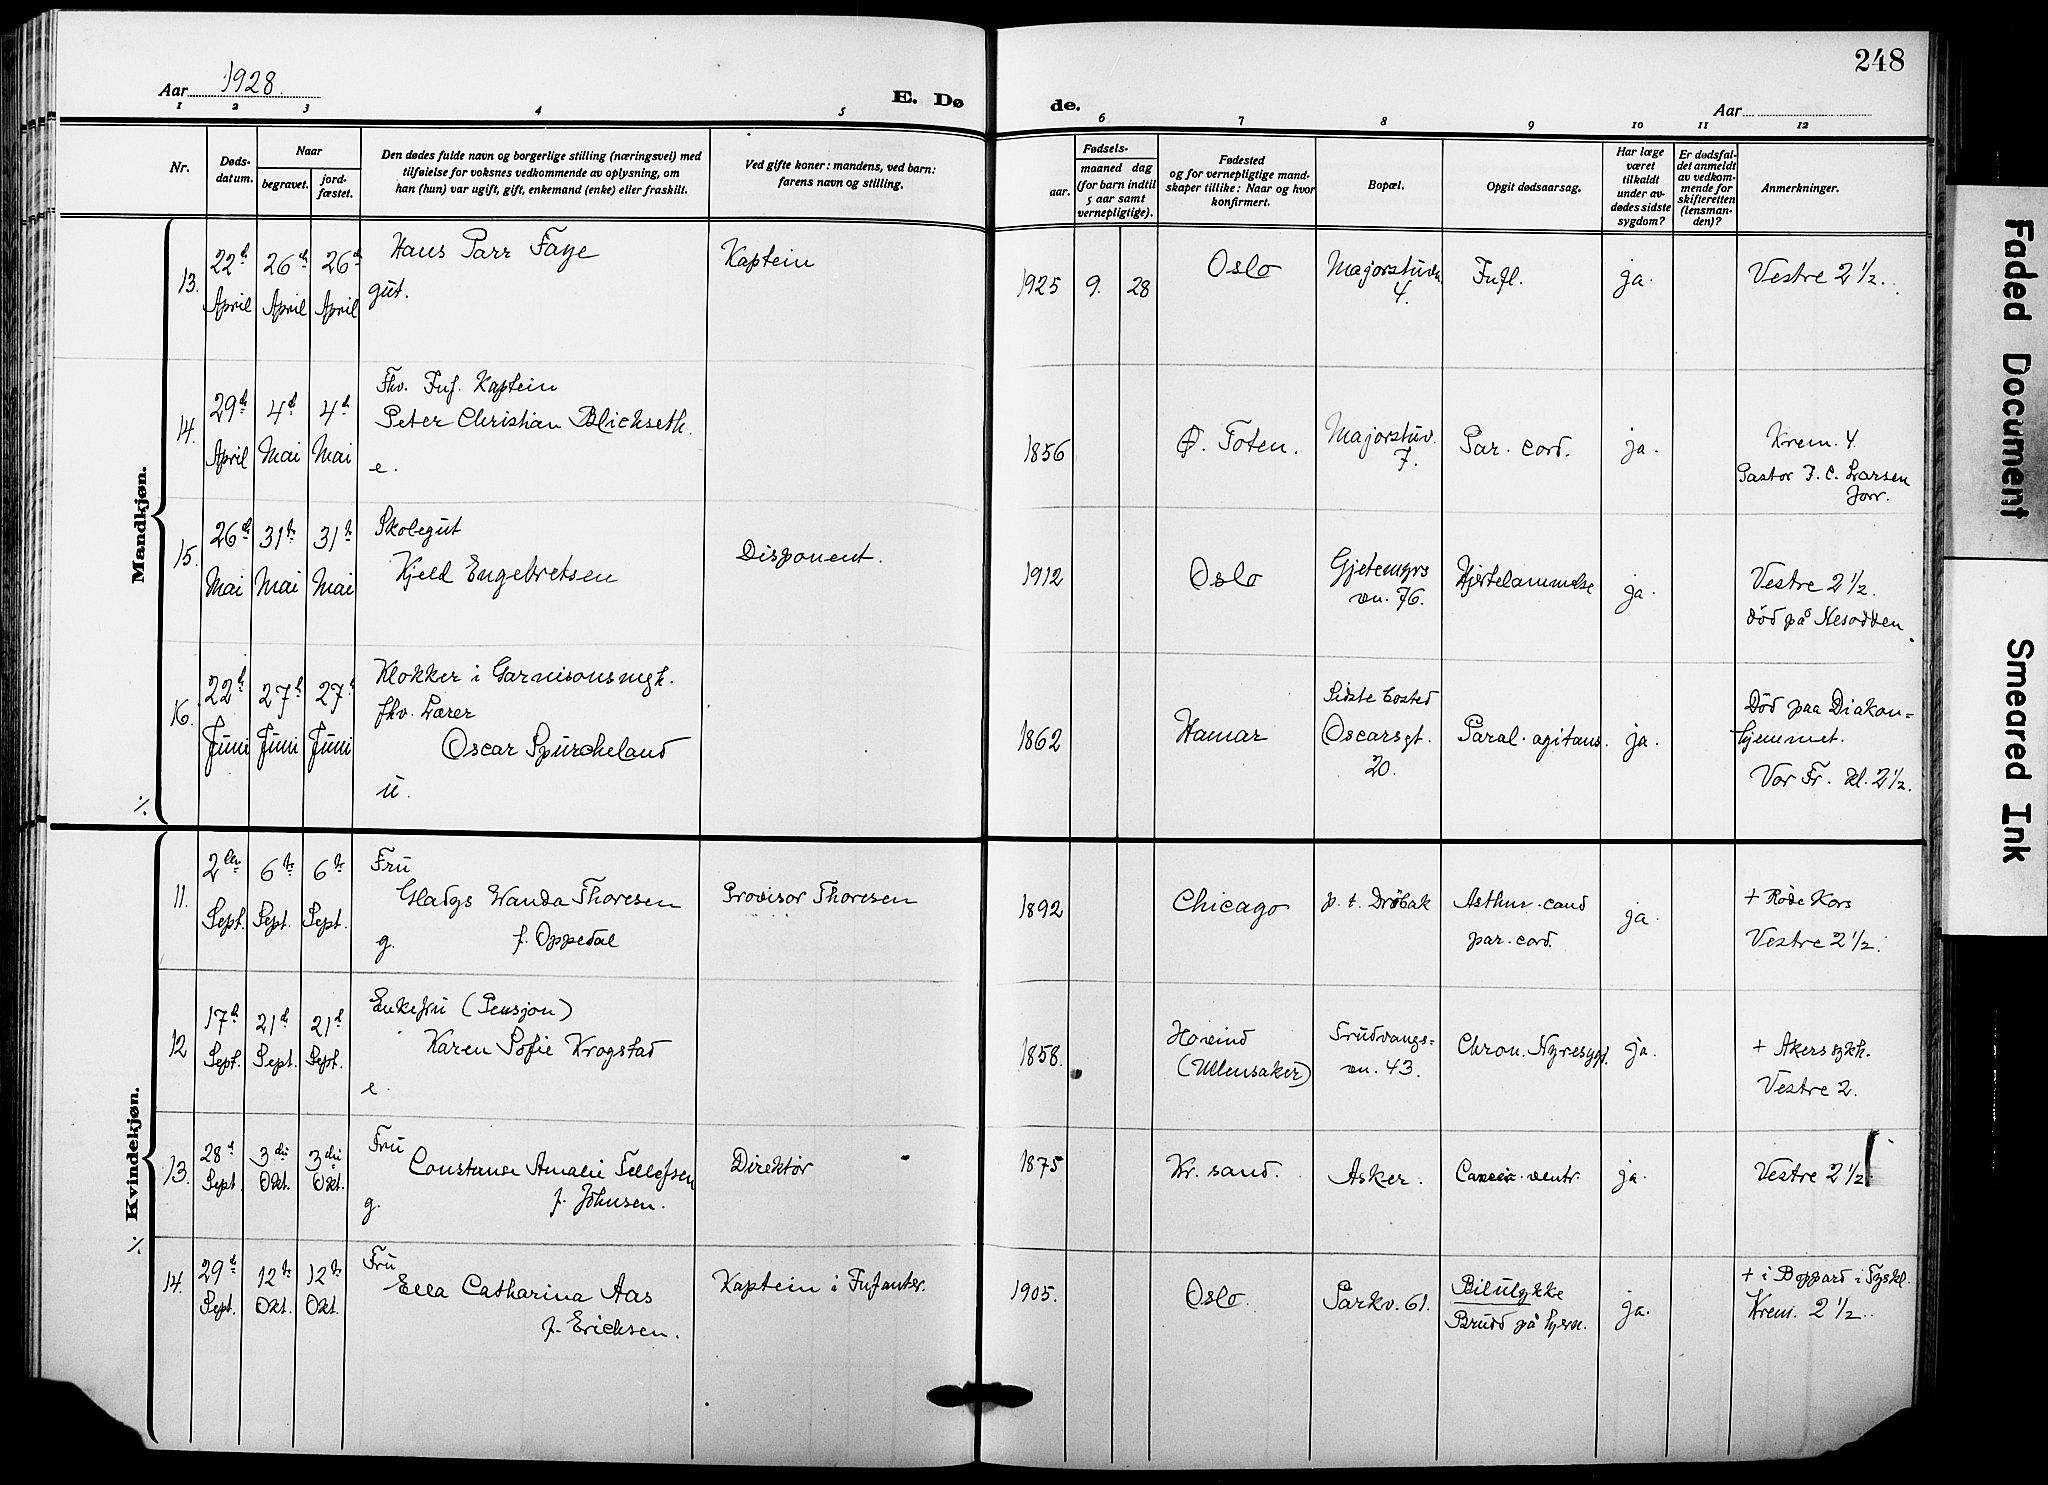 248
Aar 1928.
E. Døde.
Aar
1 2 3 4 5 6 7 8 9 10 11 12
Nr.
Døds-
datum.
Naar
begravet.
jord-
fæstet.
Den dødes fulde navn og borgerlige stilling (næringsvei) med
tilføielse for voksnes vedkommende av oplysning, om
han (hun) var ugift, gift, enkemand (enke) eller fraskilt.
Ved gifte koner: mandens, ved barn:
farens navn og stilling.
Fødsels-
aar.
maaned dag
(for barn indtil
5 aar samt
vernepligtige).
Fødested
og for vernepligtige mand-
skaper tillike: Naar og hvor
konfirmert.
Bopæl.
Opgit dødsaarsag.
Har læge
været
tilkaldt
under av-
dødes sidste
sygdom?
Er dødsfal-
det anmeldt
av vedkom-
mende for
skifteretten
(lensman-
den)?
Anmerkninger.
Mandkjøn.
13. 22d April 26d April 26d April
Hans Parr Faye
gut.
Kaptein
1925 9. 28
Oslo
Majorstuvn.
4.
Infl.
ja.
Vestre 2 1/2.
14. 29d April 4d Mai 4d Mai
Fhv. Inf. Kaptein
Peter Christian Blichseth.
e.
1856
Ø. Toten.
Majorstuv.
7.
Par. cord.
ja.
Krem. 4.
Pastor I. C. Larsen
forr.
15. 26d Mai 31te Mai 31te Mai
Skolegut
Kjeld Engebretsen
Disponent.
1912
Oslo
Gjetemyrs
vn. 76.
Hjertelammelse
ja.
Vestre 2 1/2.
død på Nesodden.
16. 22d Juni 27d Juni 27d Juni
Klokker i Garnisonsmgh.
fhv. Lærer
Oscar Spurcheland
u.
1862
Hamar
Sidste bosted
Oscarsgt.
20.
Paral. agitans.
ja.
Død paa Diakon=
hjemmet.
Vor Fr. kl. 2 1/2.
./.
Kvindekjøn.
11. 2den Sept. 6te Sept. 6te Sept.
Fru
Gladys Wanda Thoresen
g. f. Oppedal
Provisor Thoresen
1892
Chicago
p. t. Drøbak
Asthm. card
par. cord.
ja.
+ Røde Kors
Vestre 2 1/2.
12 17d Sept. 21d Sept. 21d Sept.
Enkefru (Pensjon)
Karen Sofie Krogstad
e.
1858.
Hovind
(Ullensaker)
Trudvangs=
vn. 43.
Chron. Nyresygd.
ja.
+ Akers sykh.
Vestre 2.
13. 28d Sept. 3die Okt. 3die Okt.
Fru
Constanse Amalie Tellefsen
g. f. Johnsen.
Direktør
1875
Kr. sand.
Asker.
Cancer. ventr.
ja.
Vestre 2 1/2
./.
14. 29d Sept. 12te Okt. 12te Okt.
Fru
Ella Catharina Aas
f. Erichsen.
Kaptein i Infanter.
1905.
Oslo.
Parkv. 61.
Bilulykke
Brudd på hjern.
ja.
+ i Boppard i Tyskl.
Krem. 2 1/2.
Faded Document
Smeared Ink